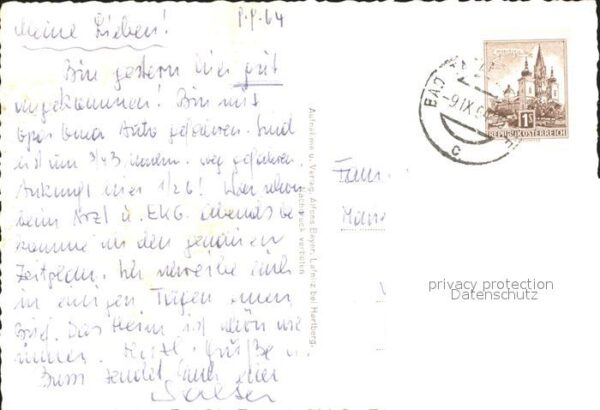 Meine Lieben!
9.9.64
Bin gestern hier gut
angekommen! Bin mit
Opas Auto gefahren. Sind
erst um 3/4 3 weg gefahren.
Ankunft hier 1/2 6! War schon
beim Arzt u. EKG. abends be
komme ich den genauen
Zeitplan. Ich schreibe euch
in einigen Tagen einen
Brief. Das Heim ist schön wie
immer. Herzl. Grüße u.
Bussi sendet Euch
Aufnahme u. Verlag: Alfons Beyer, Lafnitz bei Hartberg.
Nachdruck verboten
BAD
-9.IX.
c
1S
REPUBLIK ÖSTERREICH
Fam.
privacy protection
Datenschutz